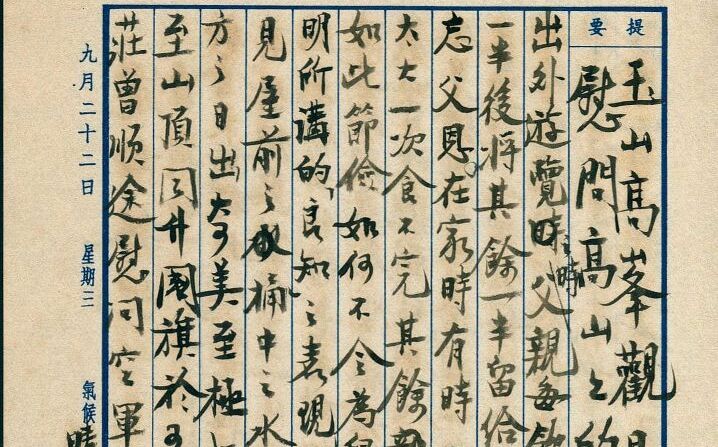 提要
玉山高峯觀
慰問高山之
出外遊覽時父親每
一半後將其餘一半留給
忘父恩。在家時有時
太太一次食不完其餘
如此節儉如何不令為
明所講的「良知」之表現
見屋前之水桶中之水
方之日出,奇美至極
至山頂同升國旗於
莊曾順途慰問空軍
九月二十二日 星期三 氣候 晴